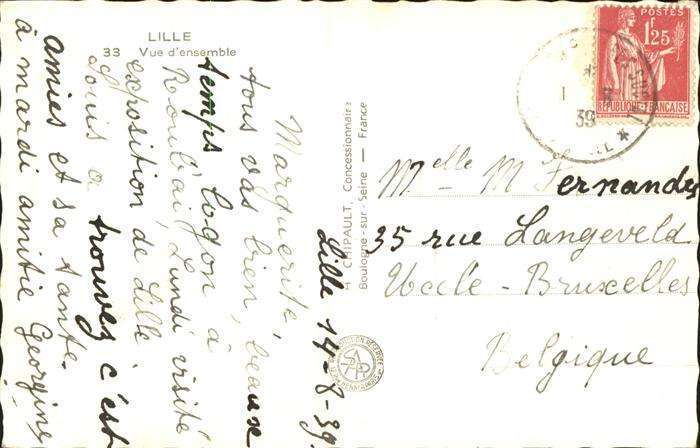 LILLE
33 Vue d'ensemble
Lille 14-8-39
Marguerite,
tous vas bien, beause
temps logon à
Roubai, Lundi visité
exposition de Lille
Louis a trouvez c'est
amies et sa tante.
à mardi amitié Georgine
H. CHIPAULT, Concessionnaire
Boulogne-sur-Seine — France
POSTES
1F25
RÉPUBLIQUE FRANÇAISE
39
Melle M Fernandes
35 rue Langeveld
Uccle-Bruxelles
Belgique